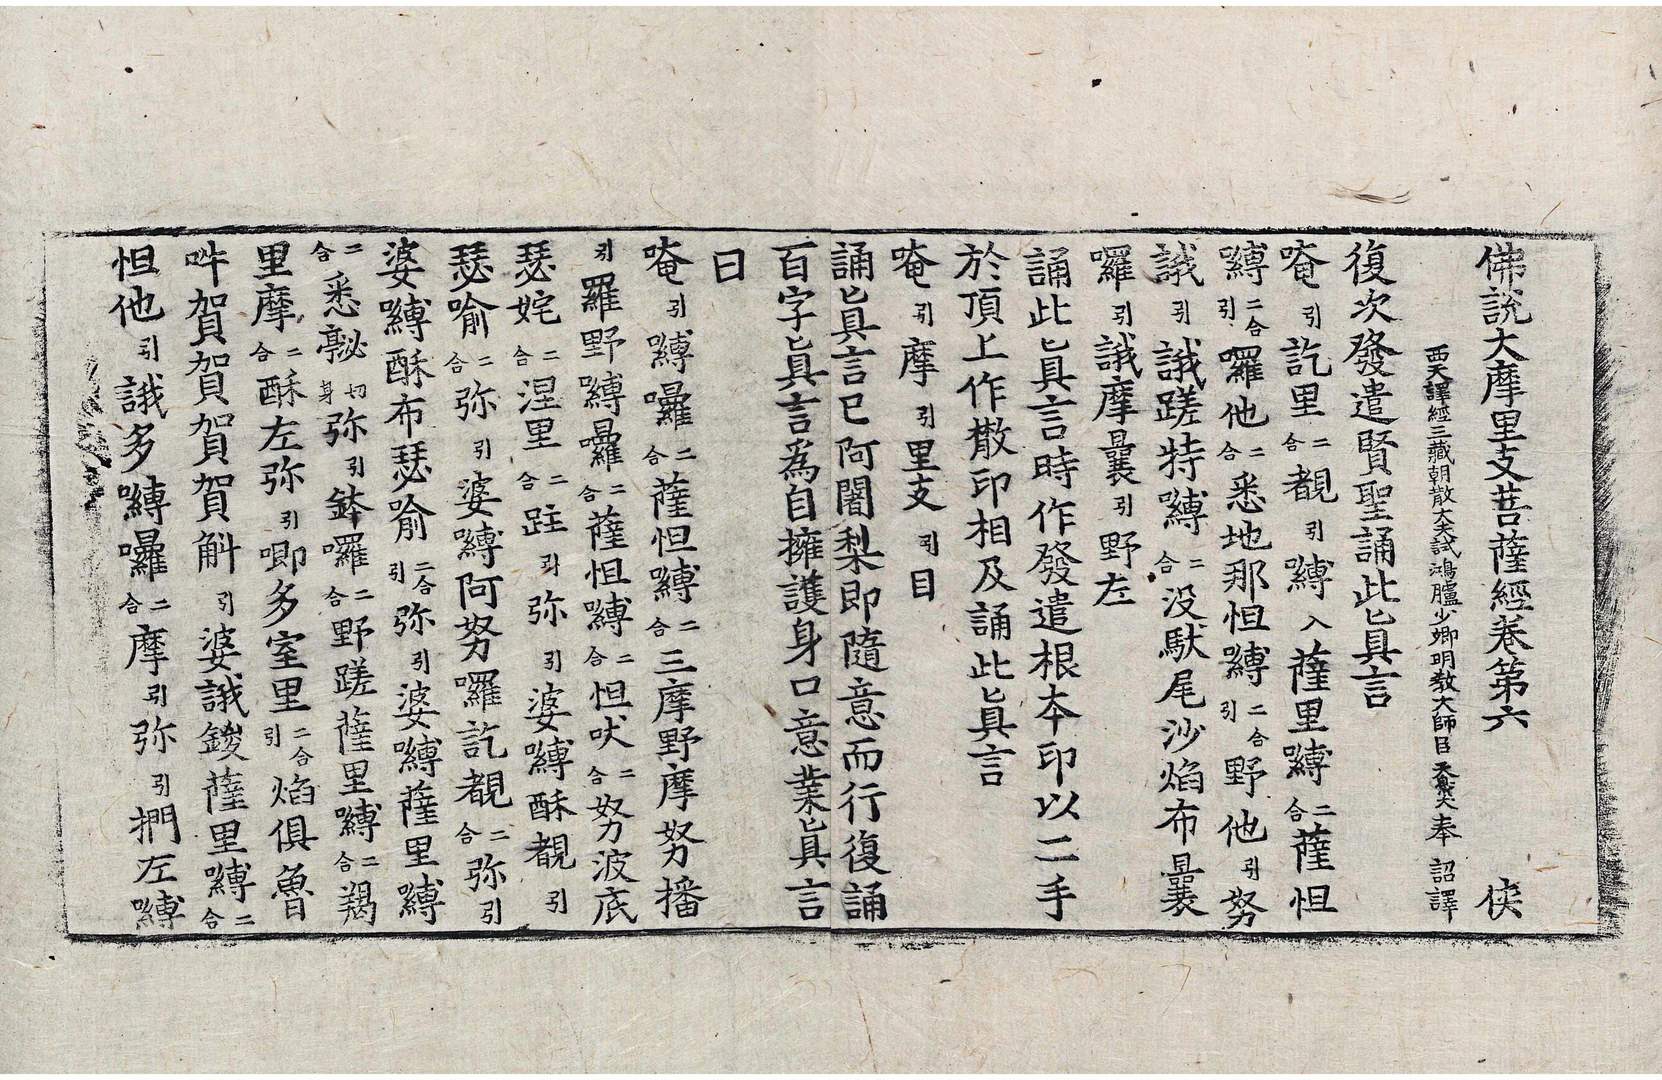 佛說大摩里支菩薩經卷第六 俠
西天譯經三藏朝散大夫試鴻臚少卿明教大師臣天息災奉 詔譯
復次發遣賢聖誦此眞言
唵引訖里二合覩引嚩入薩里嚩二合薩怛
嚩二合引囉他二合悉地那怛嚩二合引野他引努
誐引誐蹉特嚩二合沒馱尾沙焰布曩
囉引誐摩曩引野左
誦此眞言時作發遣根本印以二手
於頂上作散印相及誦此眞言
唵引摩引里支引目
誦眞言已阿闍梨即隨意而行復誦
百字眞言為自擁護身口意業眞言
曰
唵引嚩囉二合薩怛嚩二合三摩野摩努播
引羅野嚩囉二合薩怛嚩二合怛吠二合努波底
瑟姹二合涅里二合跓引弥引婆嚩酥覩引
瑟喻二合弥引婆嚩阿努囉訖覩二合弥引
婆嚩酥布瑟喻二合引弥引婆嚩薩里嚩
二合悉𠅙切身弥引鉢囉二合野蹉薩里嚩二合羯
里摩二合酥左弥引唧多室里二合引焰俱魯
吽賀賀賀賀斛引婆誐鑁薩里嚩二合
怛他引誐多嚩囉二合摩引弥引捫左嚩